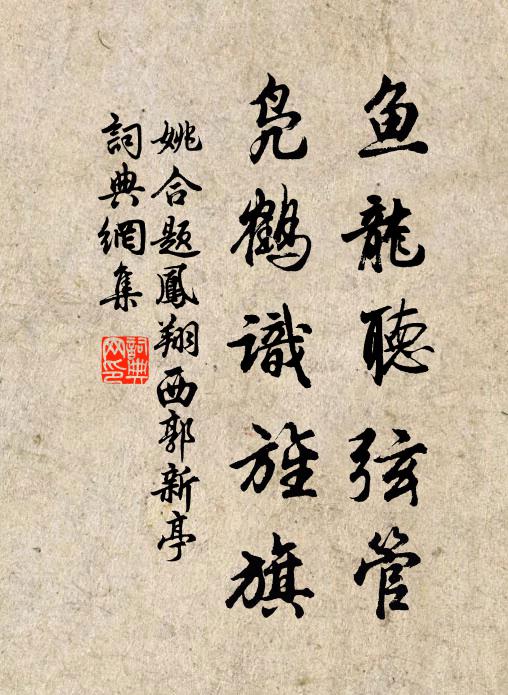 鱼龍聽弦管
凫鶴識旌旗
姚合题鳳翔西郭新亭
詞典網集
詞典網印